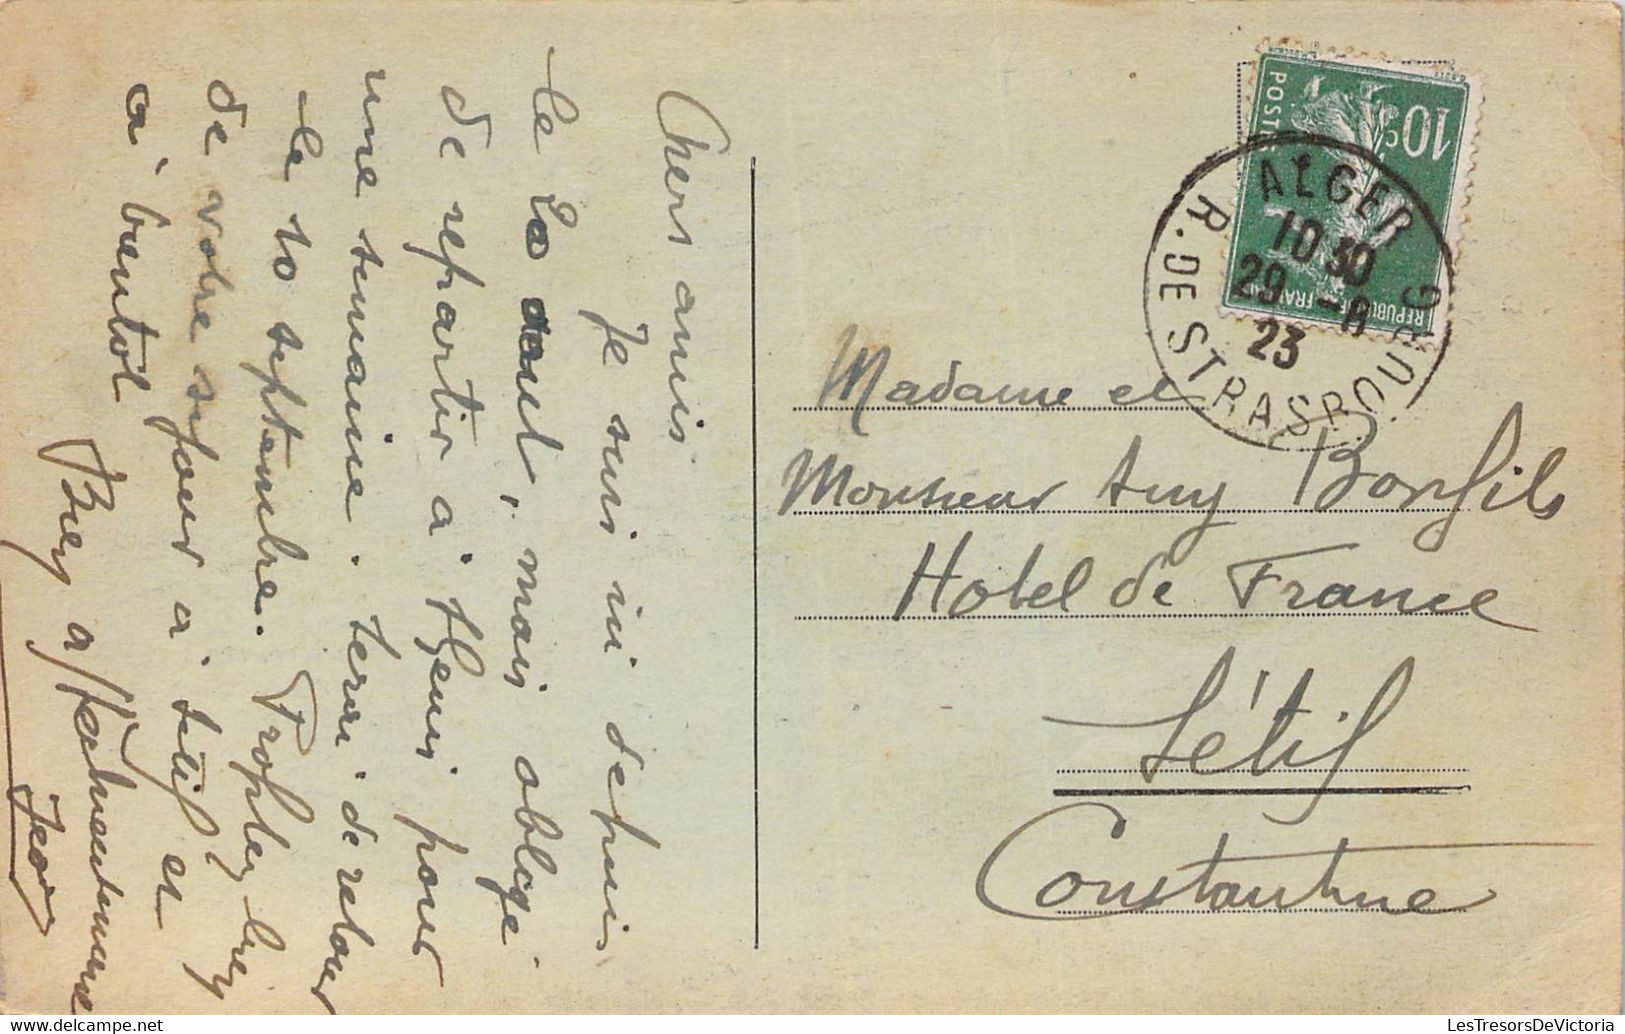 Chers amis
Je suis ici depuis
le 20 aout, mais obligé
de repartir à pour
une semaine. serai de retour
le 10 septembre. Profitez bien
de votre séjour à Sétif et
à bientôt
Bien affectueusement
Jean
Madame et
Monsieur Guy Bonfils
Hotel de France
Sétif
Constantine
10c
POSTES
REPUBLIQUE FRANÇAISE
ALGER
10 30
29 -8
23
R. DE STRASBOURG
LesTresorsDeVictoria